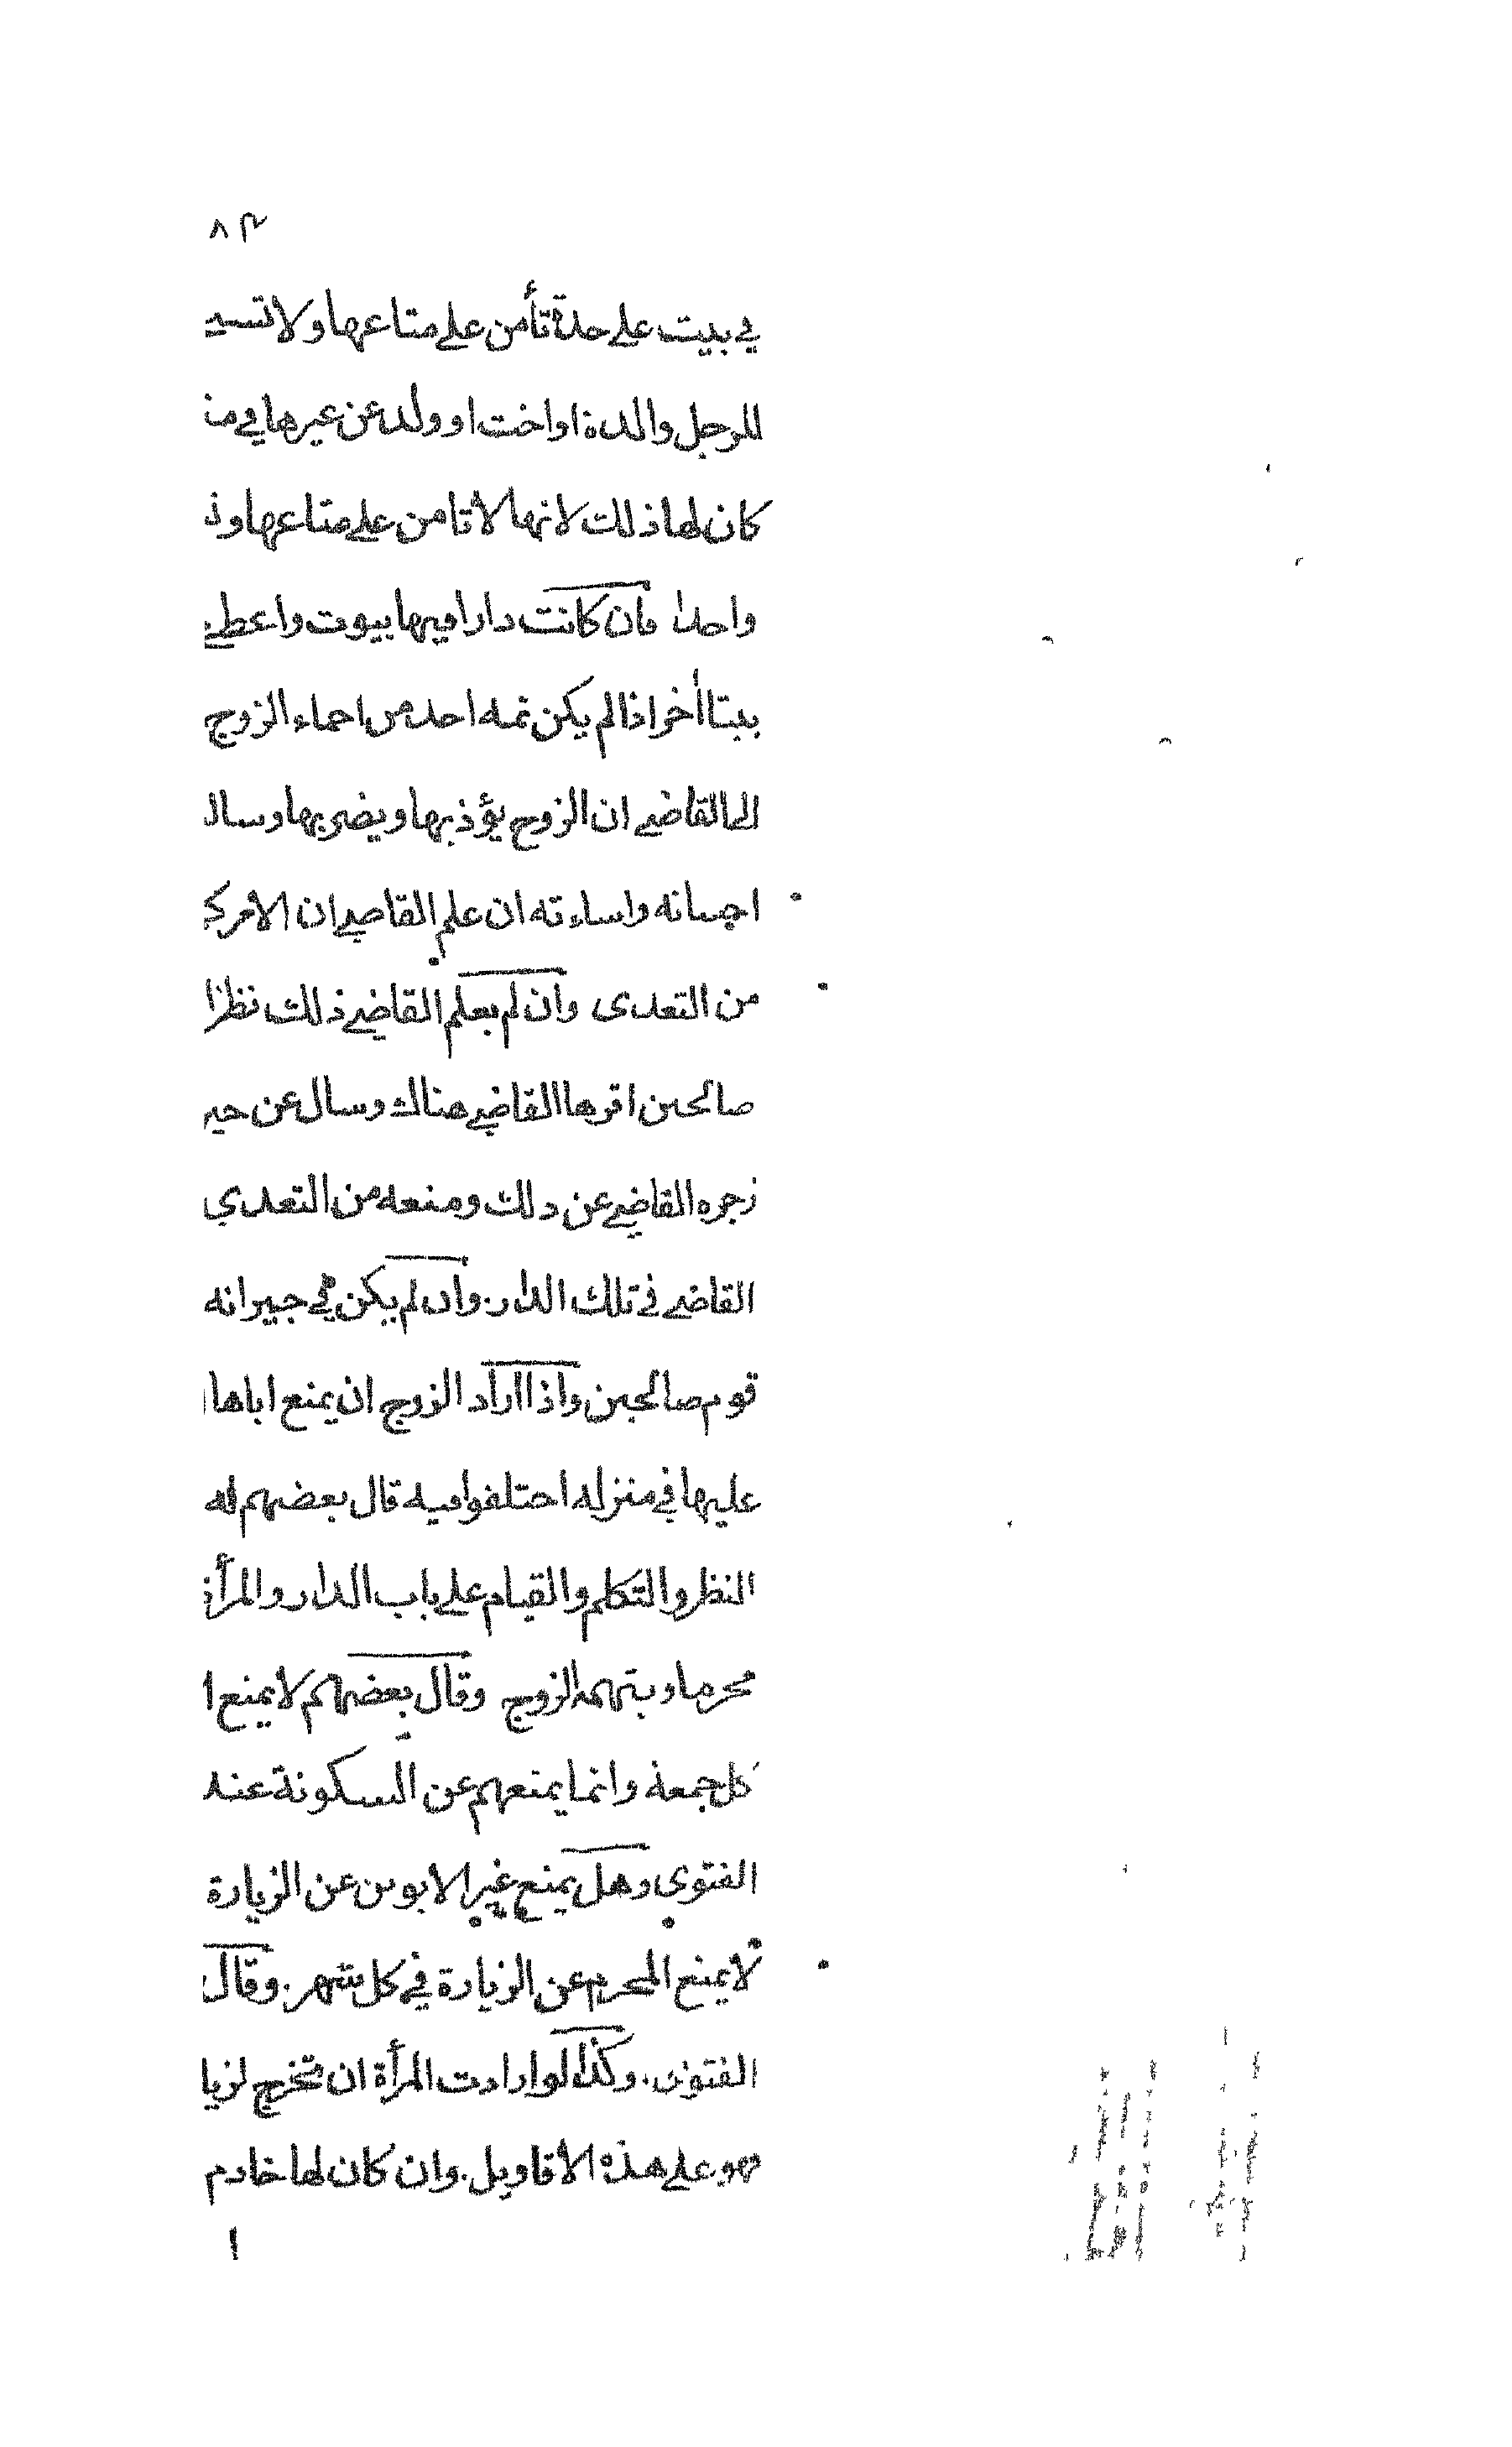 ٨٣
في بيت على حدة تأمن على متاعها ولا تسـ
للرجل والدة او اخت او ولد عن غيرها في منـ
كان لها ذلك لانها لا تامن على متاعها و
واحدا فان كانت دارا فيها بيوت واعطى
بيتا اخر اذا لم يكن ثمه احد من احماء الزوج
الى القاضي ان الزوج يؤذيها ويضربها وسال
احسانه واساءته ان علم القاضي ان الامر كـ
من التعدى وان لم يعلم القاضي ذلك نظرا
صالحين اقرها القاضي هناك وسال عن جيـ
زجره القاضي عن ذلك ومنعه من التعدي
القاضي في تلك الدار. وان لم يكن في جيرانه
قوم صالحين واذا اراد الزوج ان يمنع اباها ا
عليها في منزله اختلفوا فيه قال بعضهم له
النظر والتكلم والقيام على باب الدار والمرأة
محرما ويتهمه الزوج وقال بعضهم لا يمنع ا
كل جمعة وانما يمنعهم عن السكونة عند
الفتوى وهل يمنع غير الابوين عن الزيارة
لا يمنع المحرم عن الزيارة في كل شهر. وقال
الفتوى. وكذا لو ارادت المرأة ان تخرج لزيا
فهو على هذه الاقاويل. وان كان لها خادم